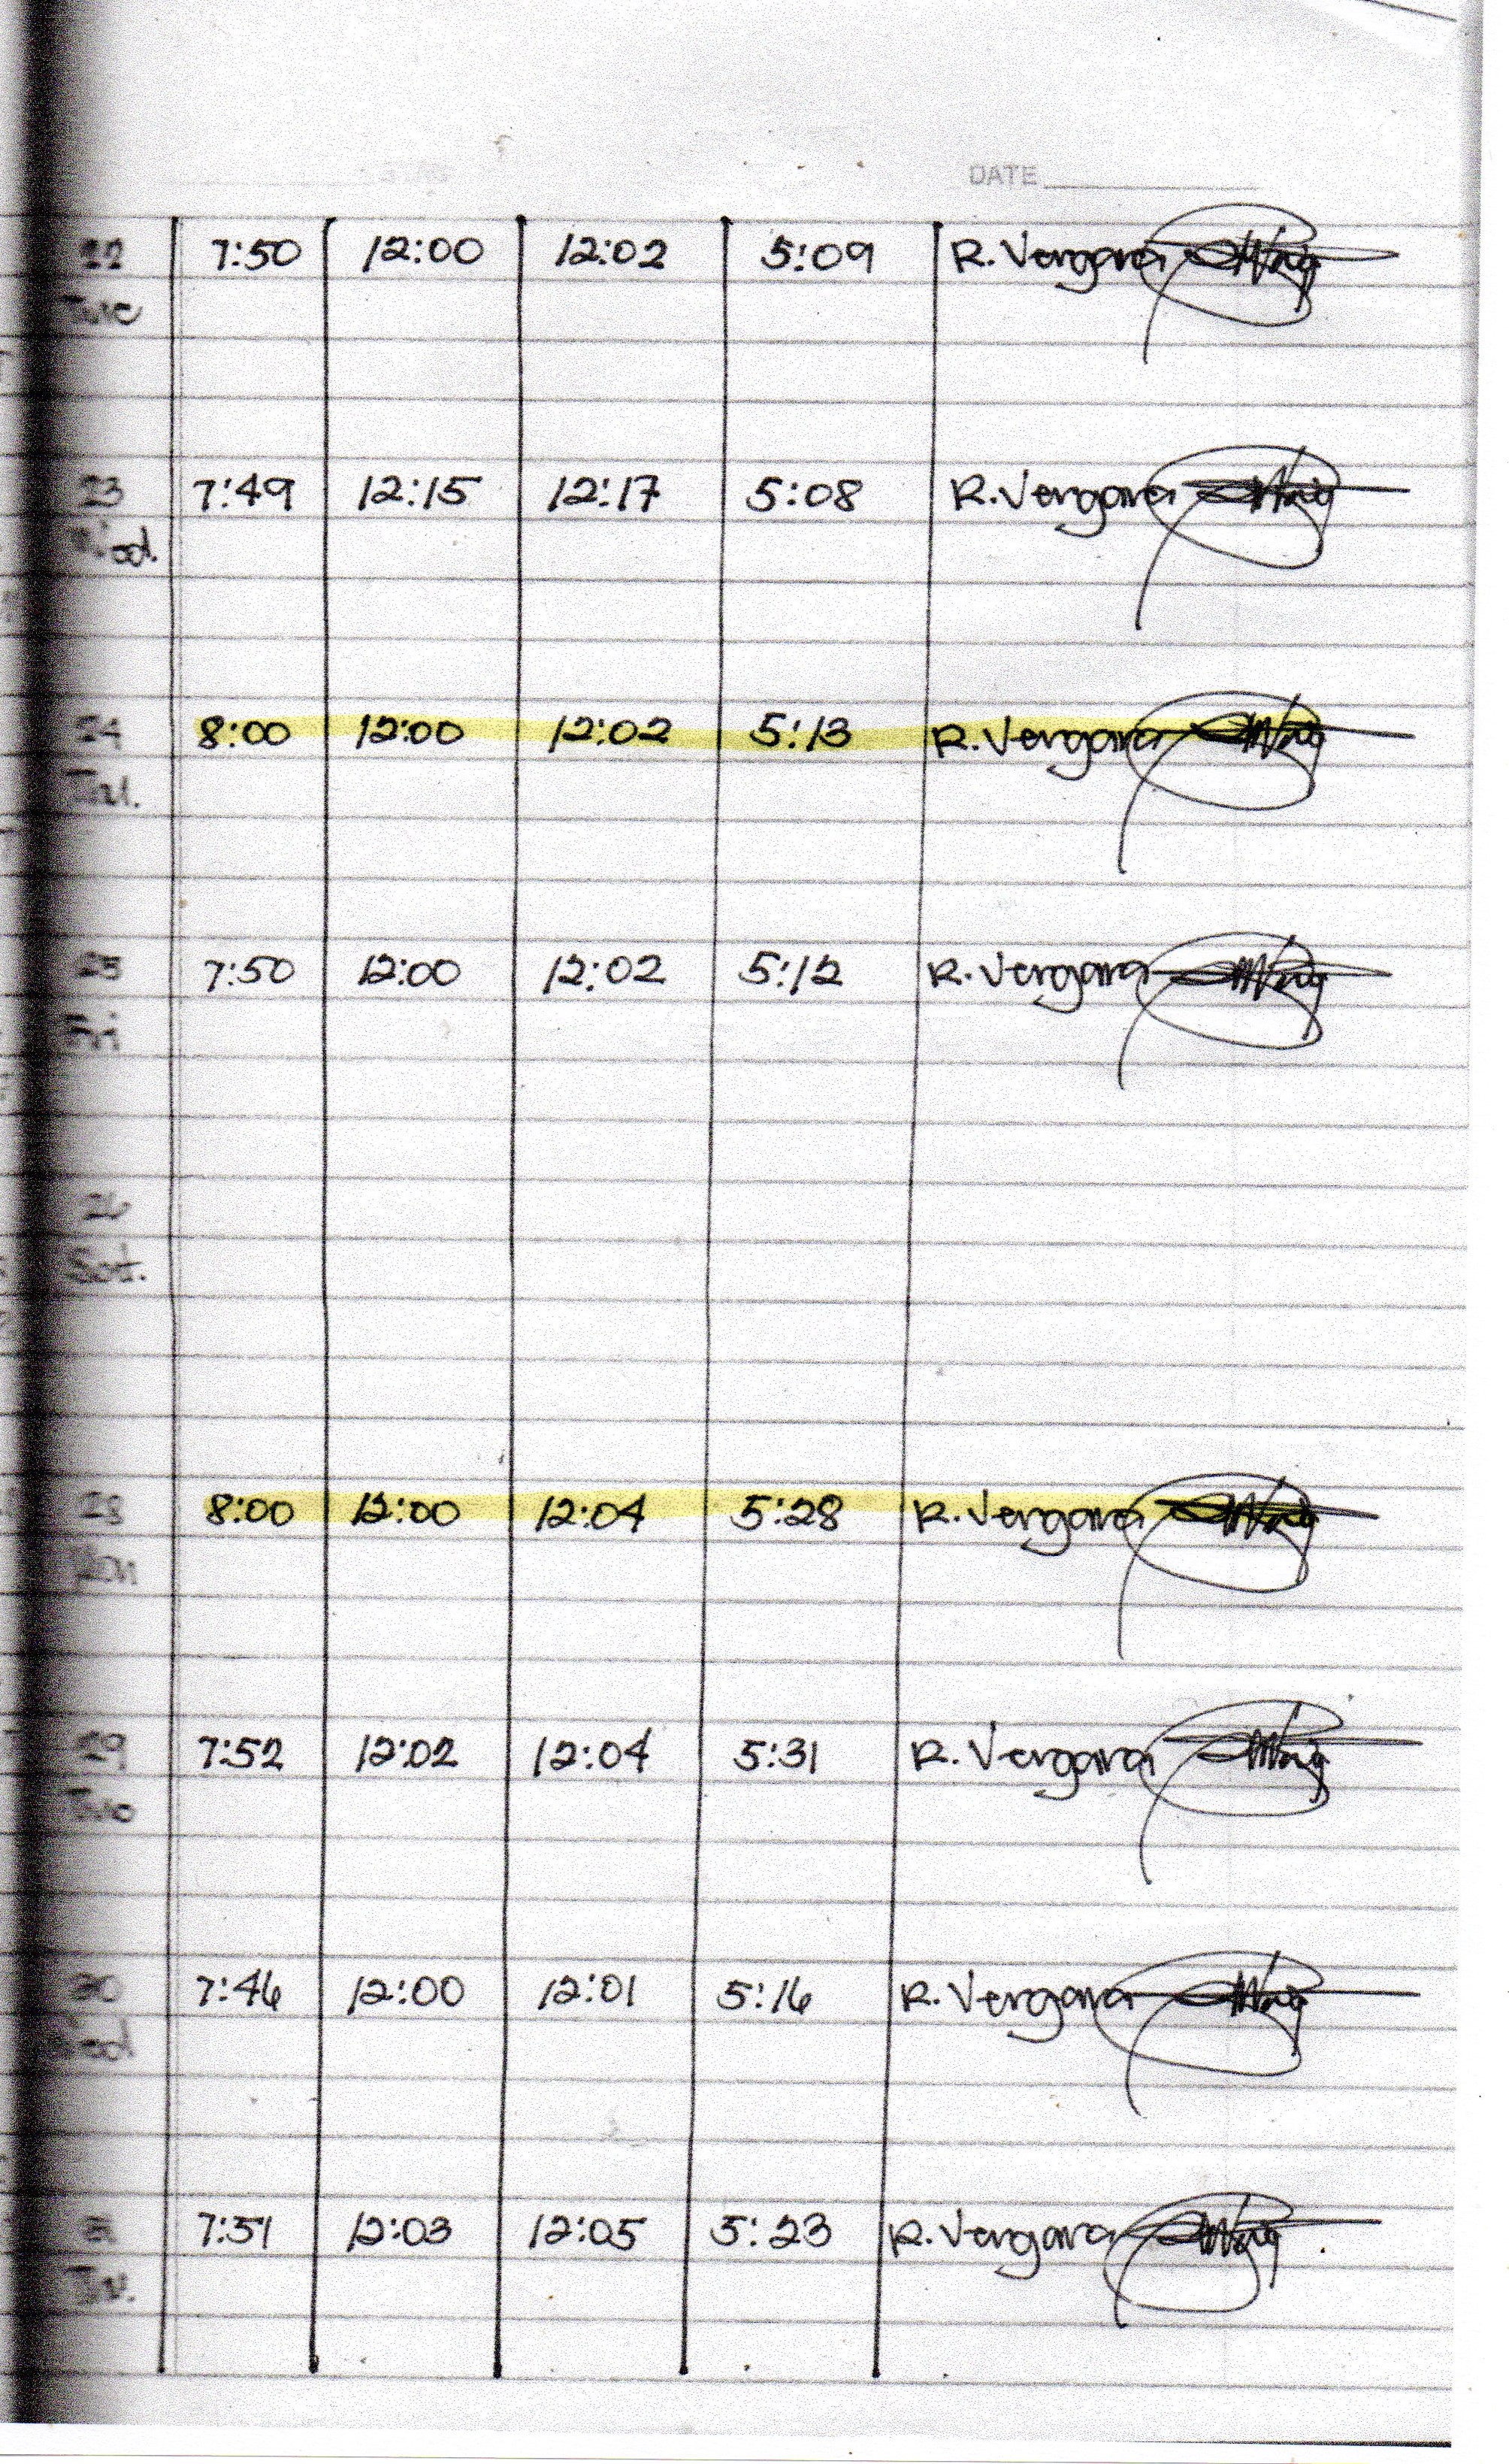 DATE
22 7:50 12:00 12:02 5:09 R. Vergara
Tue
23 7:49 12:15 12:17 5:08 R. Vergara
Wed.
24 8:00 12:00 12:02 5:13 R. Vergara
25 7:50 12:00 12:02 5:12 R. Vergara
Fri
26
Sat.
28 8:00 12:00 12:04 5:28 R. Vergara
Mon
29 7:52 12:02 12:04 5:31 R. Vergara
Tue
30 7:46 12:00 12:01 5:16 R. Vergara
Wed
7:51 12:03 12:05 5:23 R. Vergara